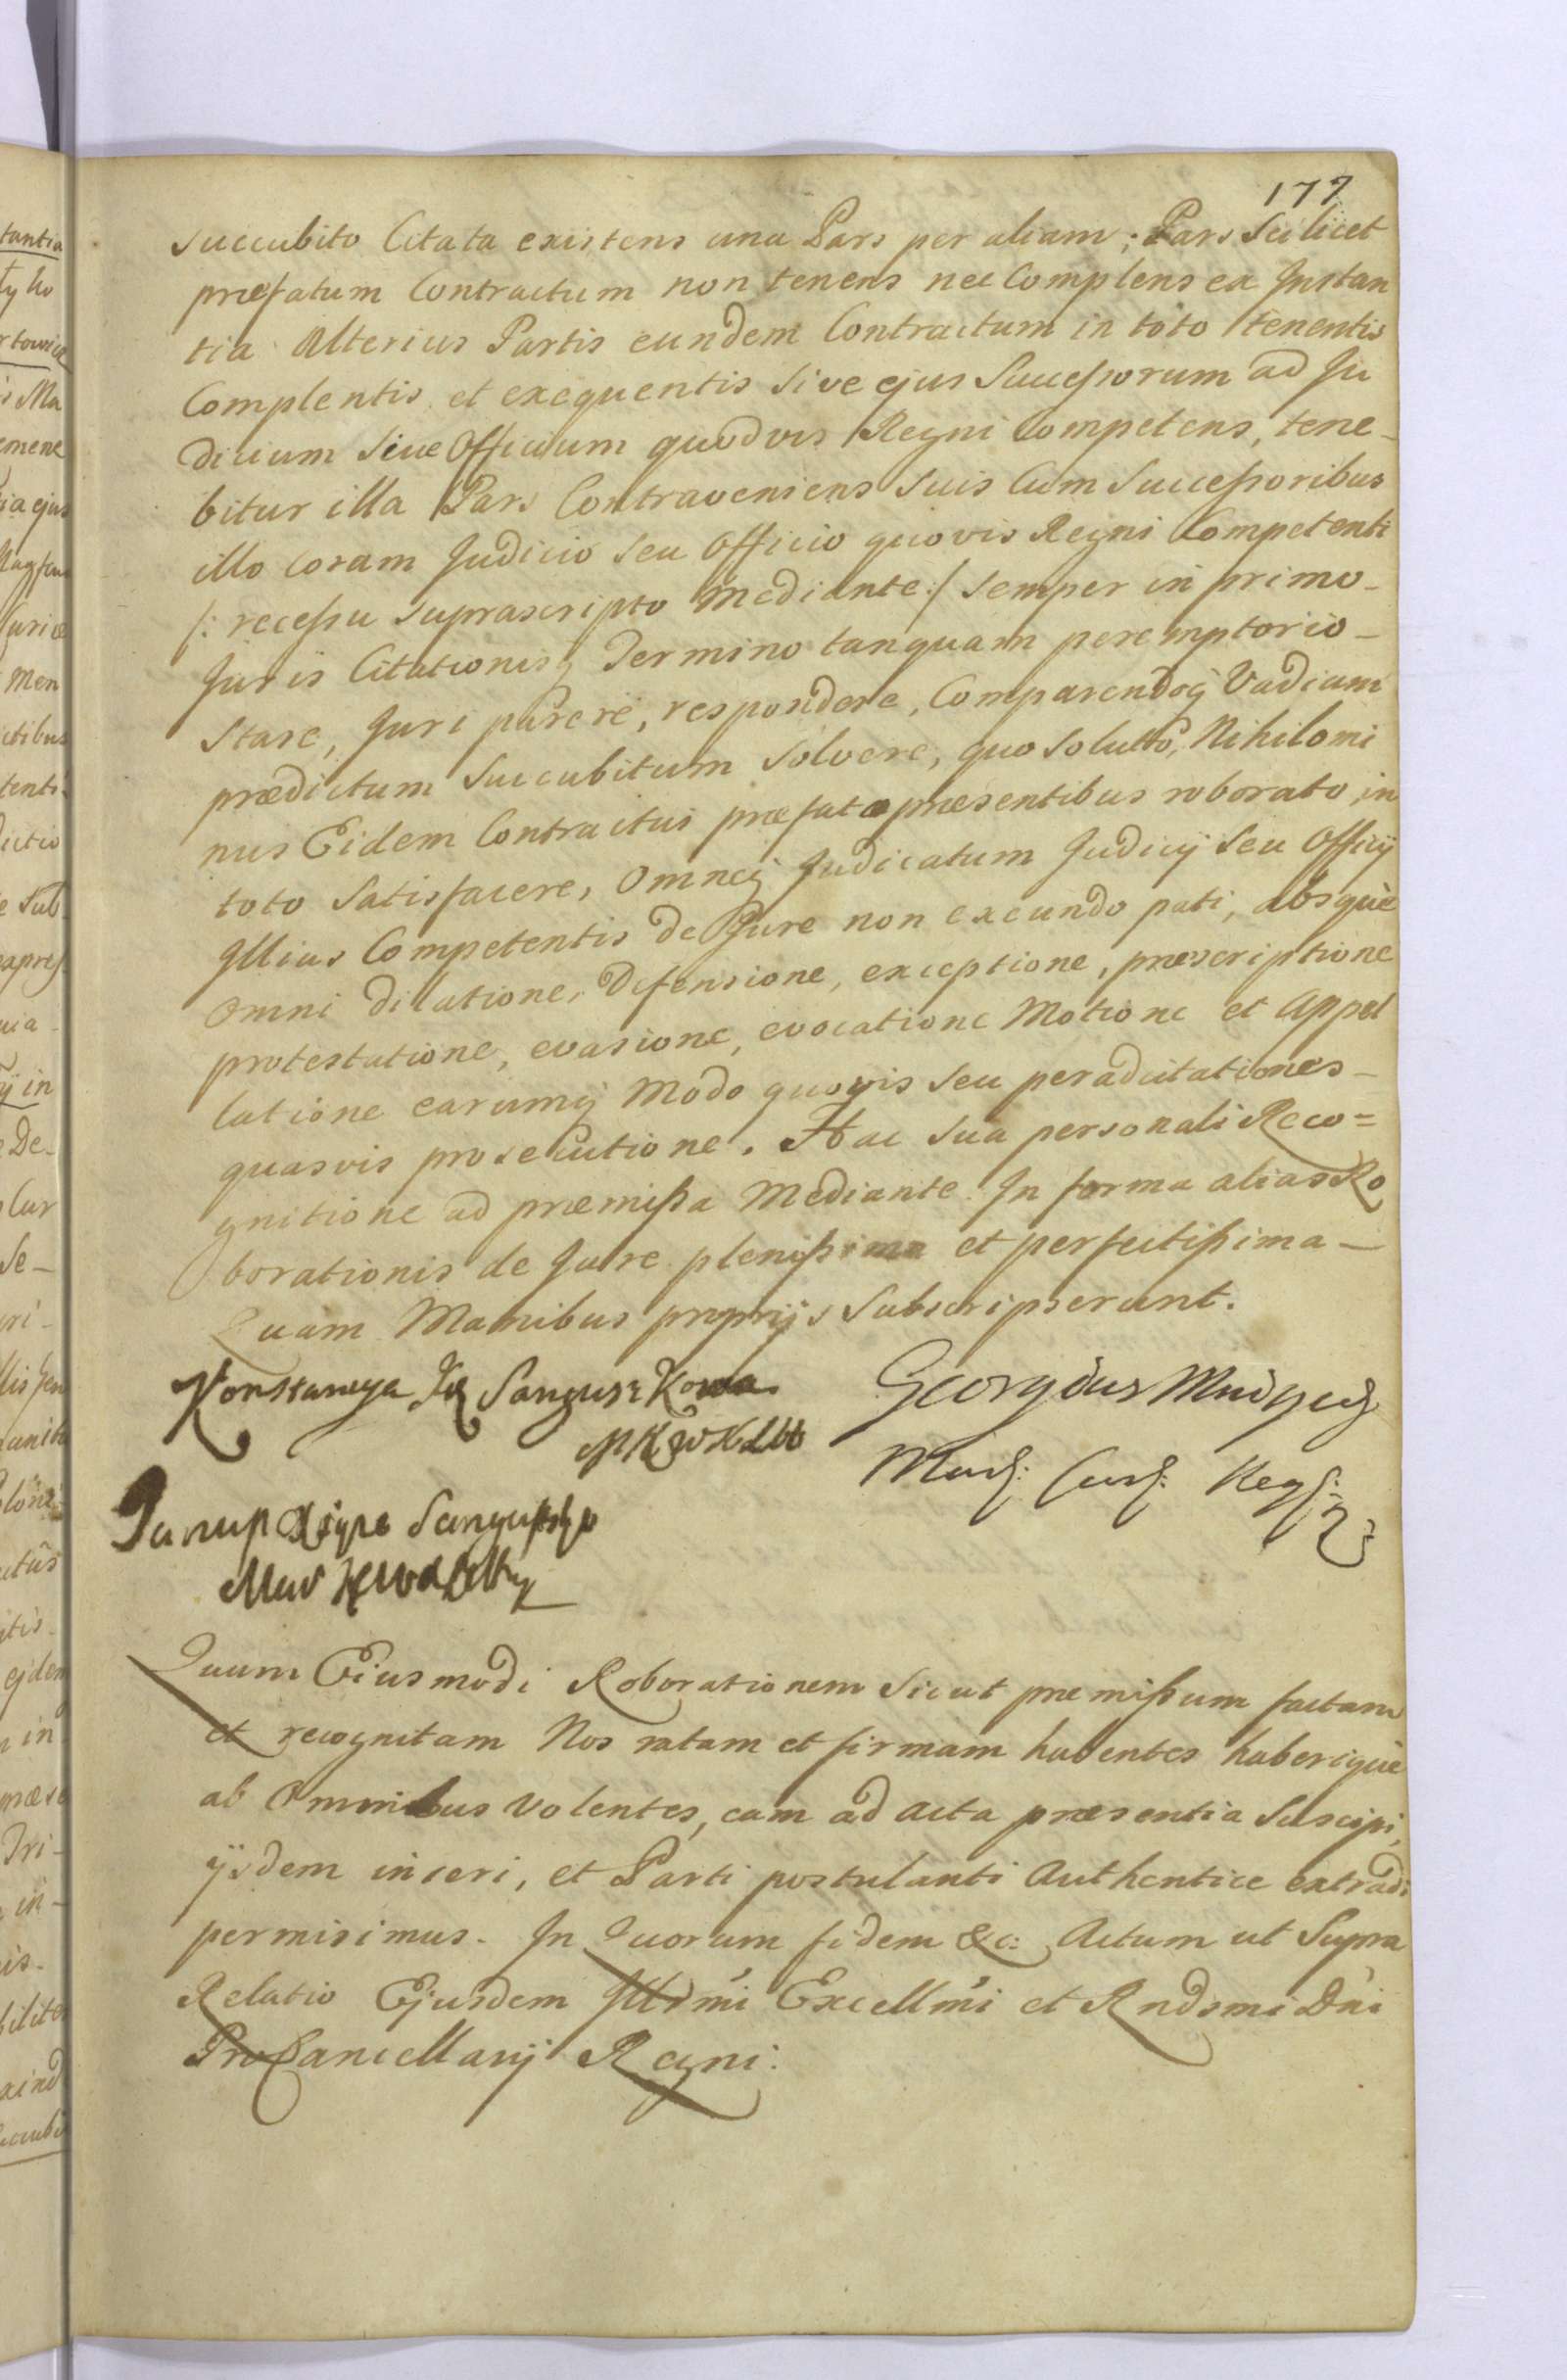 177
succubito Citata existens una Pars per aliam; Pars Scilicet
præfatum Contractum non tenens nec Complens ex Instan
tia Alterius Partis eundem Contractum in toto tenentis
Complentis et exequentis sive ejus Successorum ad Ju
dicium Sive Officium quodvis Regni Competens, tene-
bitur illa Pars Contraveniens suis Cum Successoribus
illo Coram Judicio seu Officio quovis Regni Competenti
/: recessu suprascripto Mediante :/ semper in primo-
Juris Citationisq Termino tanquam peremptorio-
Stare, Juri parere, respondere, Comparendoq Vadium
prædictum Succubitum Solvere, quo soluto, Nihilomi
nus Eidem Contractui præfato præsentibus roborato in
toto Satisfacere, Omneq Judicatum Judicij Seu Officij
Illius Competentis de Jure non exeundo pati, absque
Omni dilatione, Defensione, exceptione, præscriptione
protestatione, evasione, evocatione Motione et Appel
latione earumq Modo quovis seu per adcitationes-
quasvis prosecutione. Hac Sua personali Reco=
gnitione ad præmissa Mediante. In forma alias Ro
borationis de Jure plenissima et perfectissima-
Quam Manibus proprijs Subscripserunt.
Konstancya Sanguszkowa
MKWXLtt
Georgius Mniszech
Mar: Cur: Reg:
Janusz Xiąże Sanguszko
Quum Eiusmodi Roborationem Sicut præmissum factam
et recognitam Nos ratam et firmam habentes haberique
ab Omnibus Volentes, eam ad Acta præsentia Suscipi,
ijsdem inseri, et Parti postulanti Authentice extradi
permisimus. In Quorum fidem &c: Actum ut Supra
Relatio Ejusdem Illrmi Excellmi et Rndsmi Dni
ProCancellarij Regni: